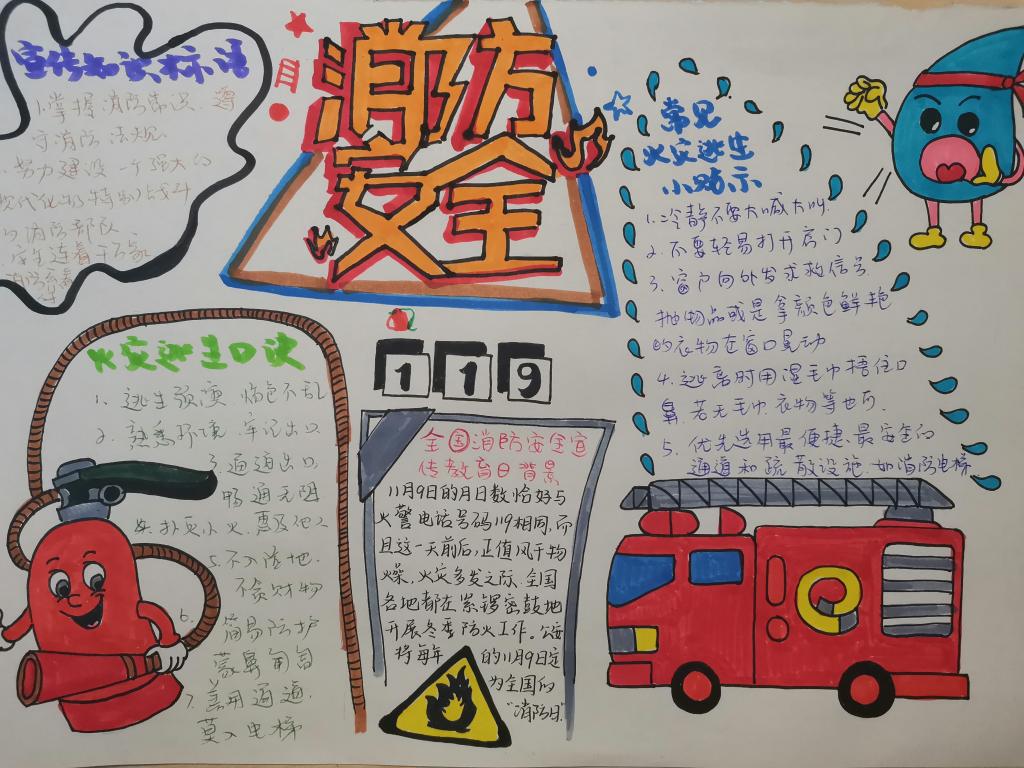 宣传知识标语
1.掌握消防常识,遵
守消防法规.
努力建设一个强大的
现代化的特别战斗
的消防部队.
月
消防
安全
常见
火灾逃生
小贴示
1.冷静不要大喊大叫.
2.不要轻易打开房门
3.窗户向外发求救信号.
抛物品或是拿颜色鲜艳
的衣物在窗口晃动
4.逃离时用湿毛巾捂住口
鼻.若无毛巾.衣物等也可.
5.优先选用最便捷、最安全的
通道和疏散设施.如消防电梯
火灾逃生口诀
1.逃生预演.临危不乱
2.熟悉环境.牢记出口.
3.通道出口.
畅通无阻.
4.扑灭小火.惠及他人
5.不入险地.
不贪财物
6.
简易防护
蒙鼻匍匐
7.善用通道.
莫入电梯
119
全国消防安全宣
传教育日背景
11月9日的月日数恰好与
火警电话号码119相同.而
且这一天前后,正值风干物
燥、火灾多发之际.全国
各地都在紧锣密鼓地
开展冬季防火工作.公安
将每年的11月9日定
为全国的
“消防日”